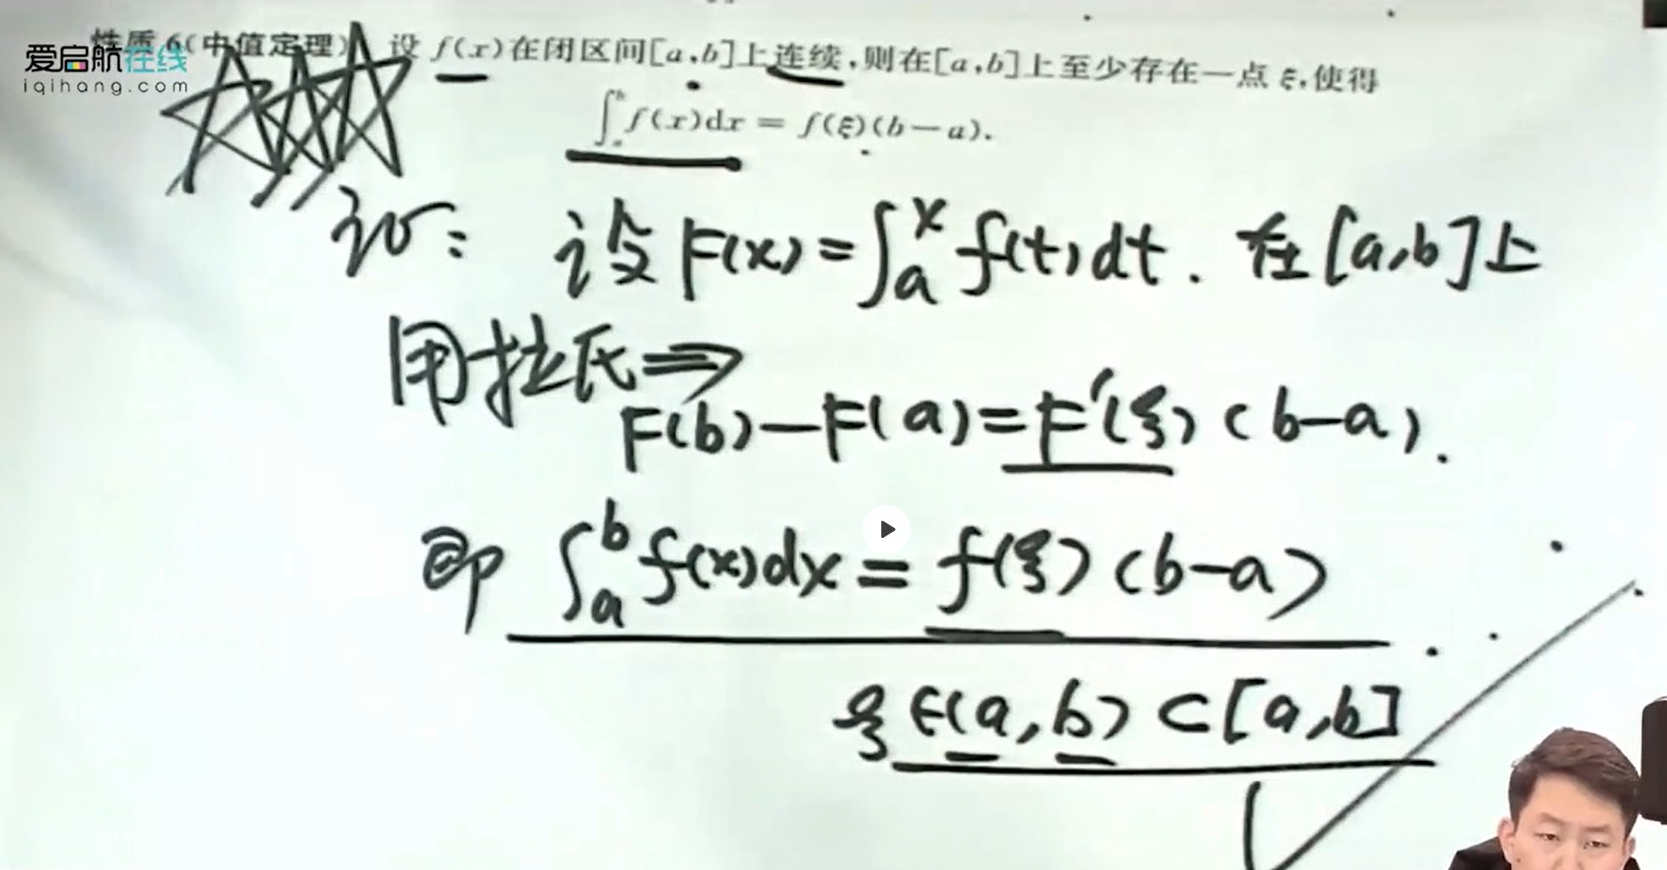 爱启航在线
iqihang.com
性质 6(中值定理) 设 f(x)在闭区间[a,b]上连续,则在[a,b]上至少存在一点 ξ,使得
∫_a^b f(x)dx = f(ξ)(b-a).
证: 设 F(x)=∫_a^x f(t)dt. 在[a,b]上
用拉氏⇒
F(b)-F(a)=F'(ξ)(b-a).
即 ∫_a^b f(x)dx = f(ξ)(b-a)
ξ∈(a,b)⊂[a,b]